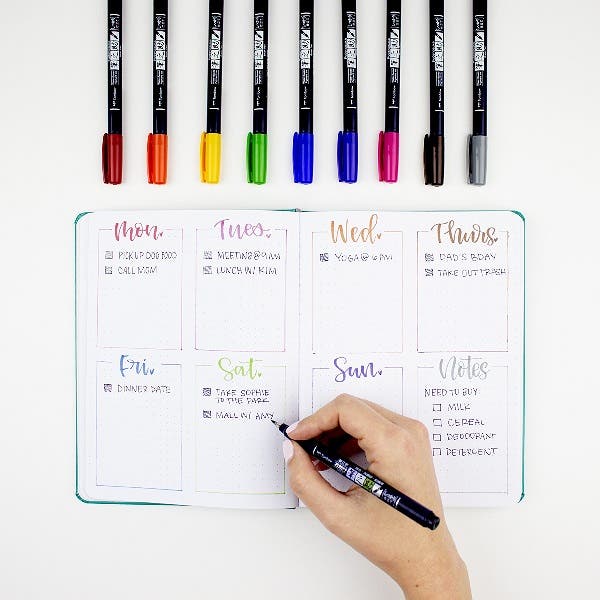 Mon.
PICK UP DOG FOOD
CALL MOM
Tues.
MEETING @ 9 AM
LUNCH W/ KIM
Wed.
YOGA @ 6 AM
Thurs.
DAD'S BDAY
TAKE OUT TRASH
Fri.
DINNER DATE
Sat.
TAKE SOPHIE
TO THE PARK
MALL W/ AMY
Sun.
Notes
NEED TO BUY:
MILK
CEREAL
DEODORANT
DETERGENT